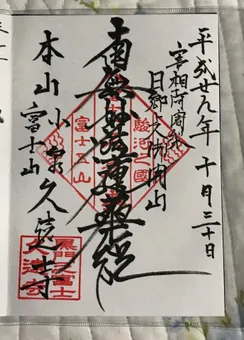 平成廿九年十月三十日
宰相阿闍梨
日郷上人開山
南無妙法蓮華経
駿河之國
富士五山
富士山
本山小泉久遠寺